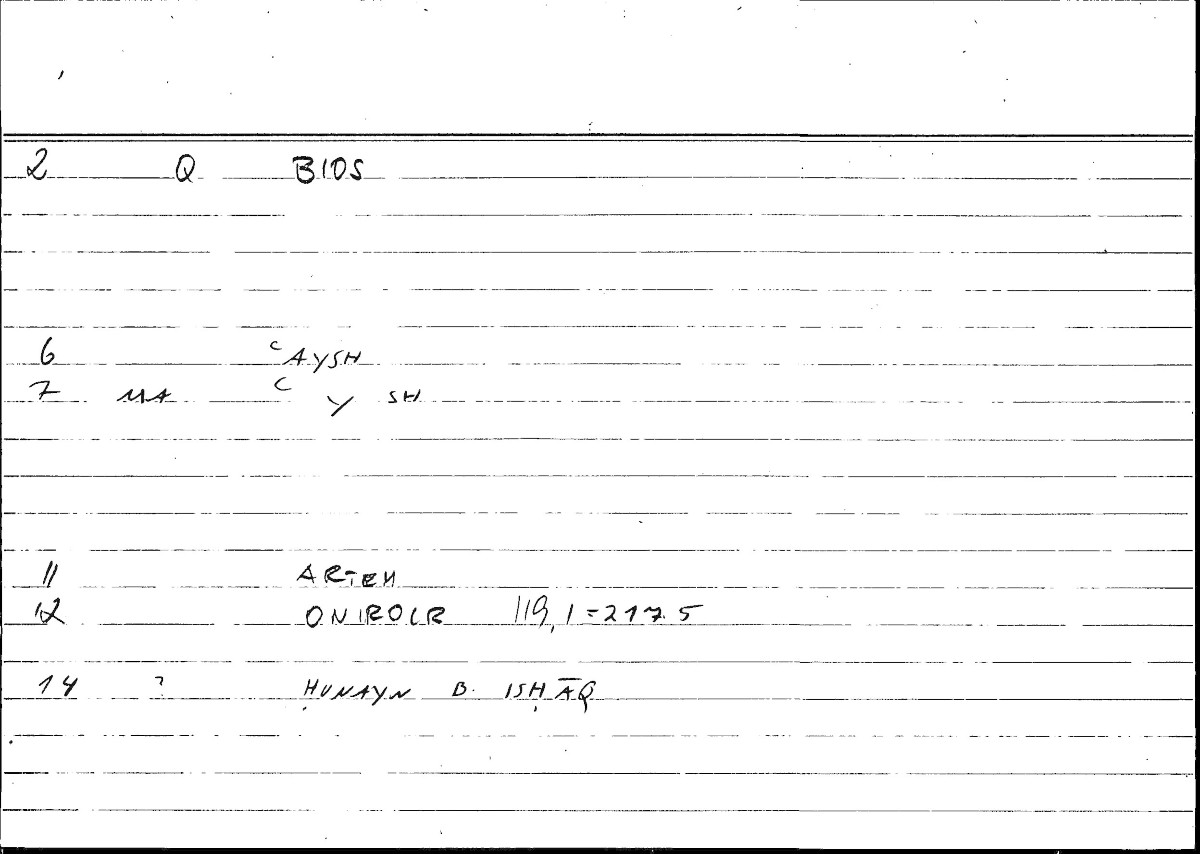 2 Q BIOS
6 ʿAYSH
7 MA ʿ Y SH
11 ARTEM
12 ONIROCR 119,1=217.5
14 ? ḤUNAYN B. ISḤĀQ